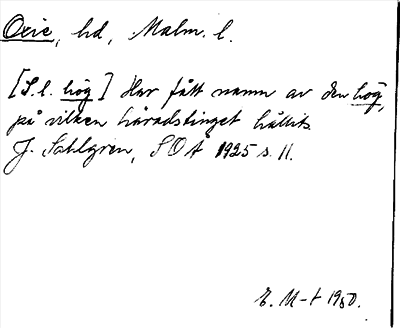 Oxie, hd, Malm. l.
[S. l. hög] Har fått namn av den hög,
på vilken häradstinget hållits.
J. Sahlgren, SOÅ 1925 s. 11.
E. M-t 1950.